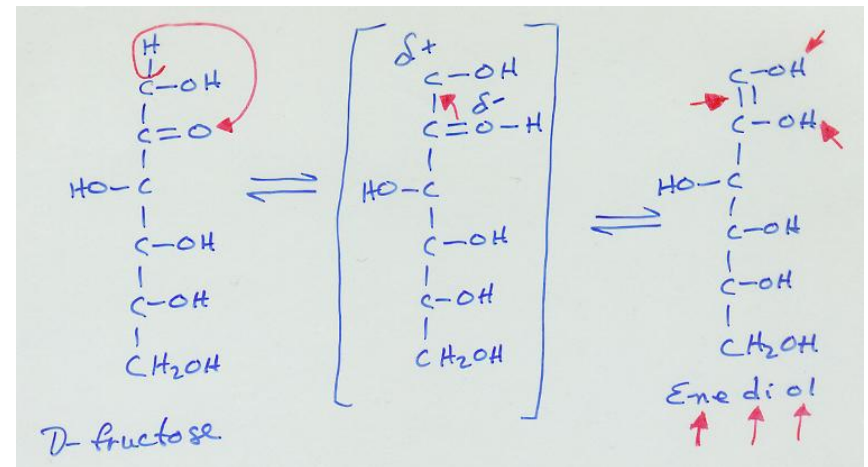 H
C-OH
C=O
HO-C
C-OH
C-OH
CH₂OH
D-fructose
δ+
C-OH
δ-
C=O-H
HO-C
C-OH
C-OH
CH₂OH
C-OH
C-OH
HO-C
C-OH
C-OH
CH₂OH
Ene di ol